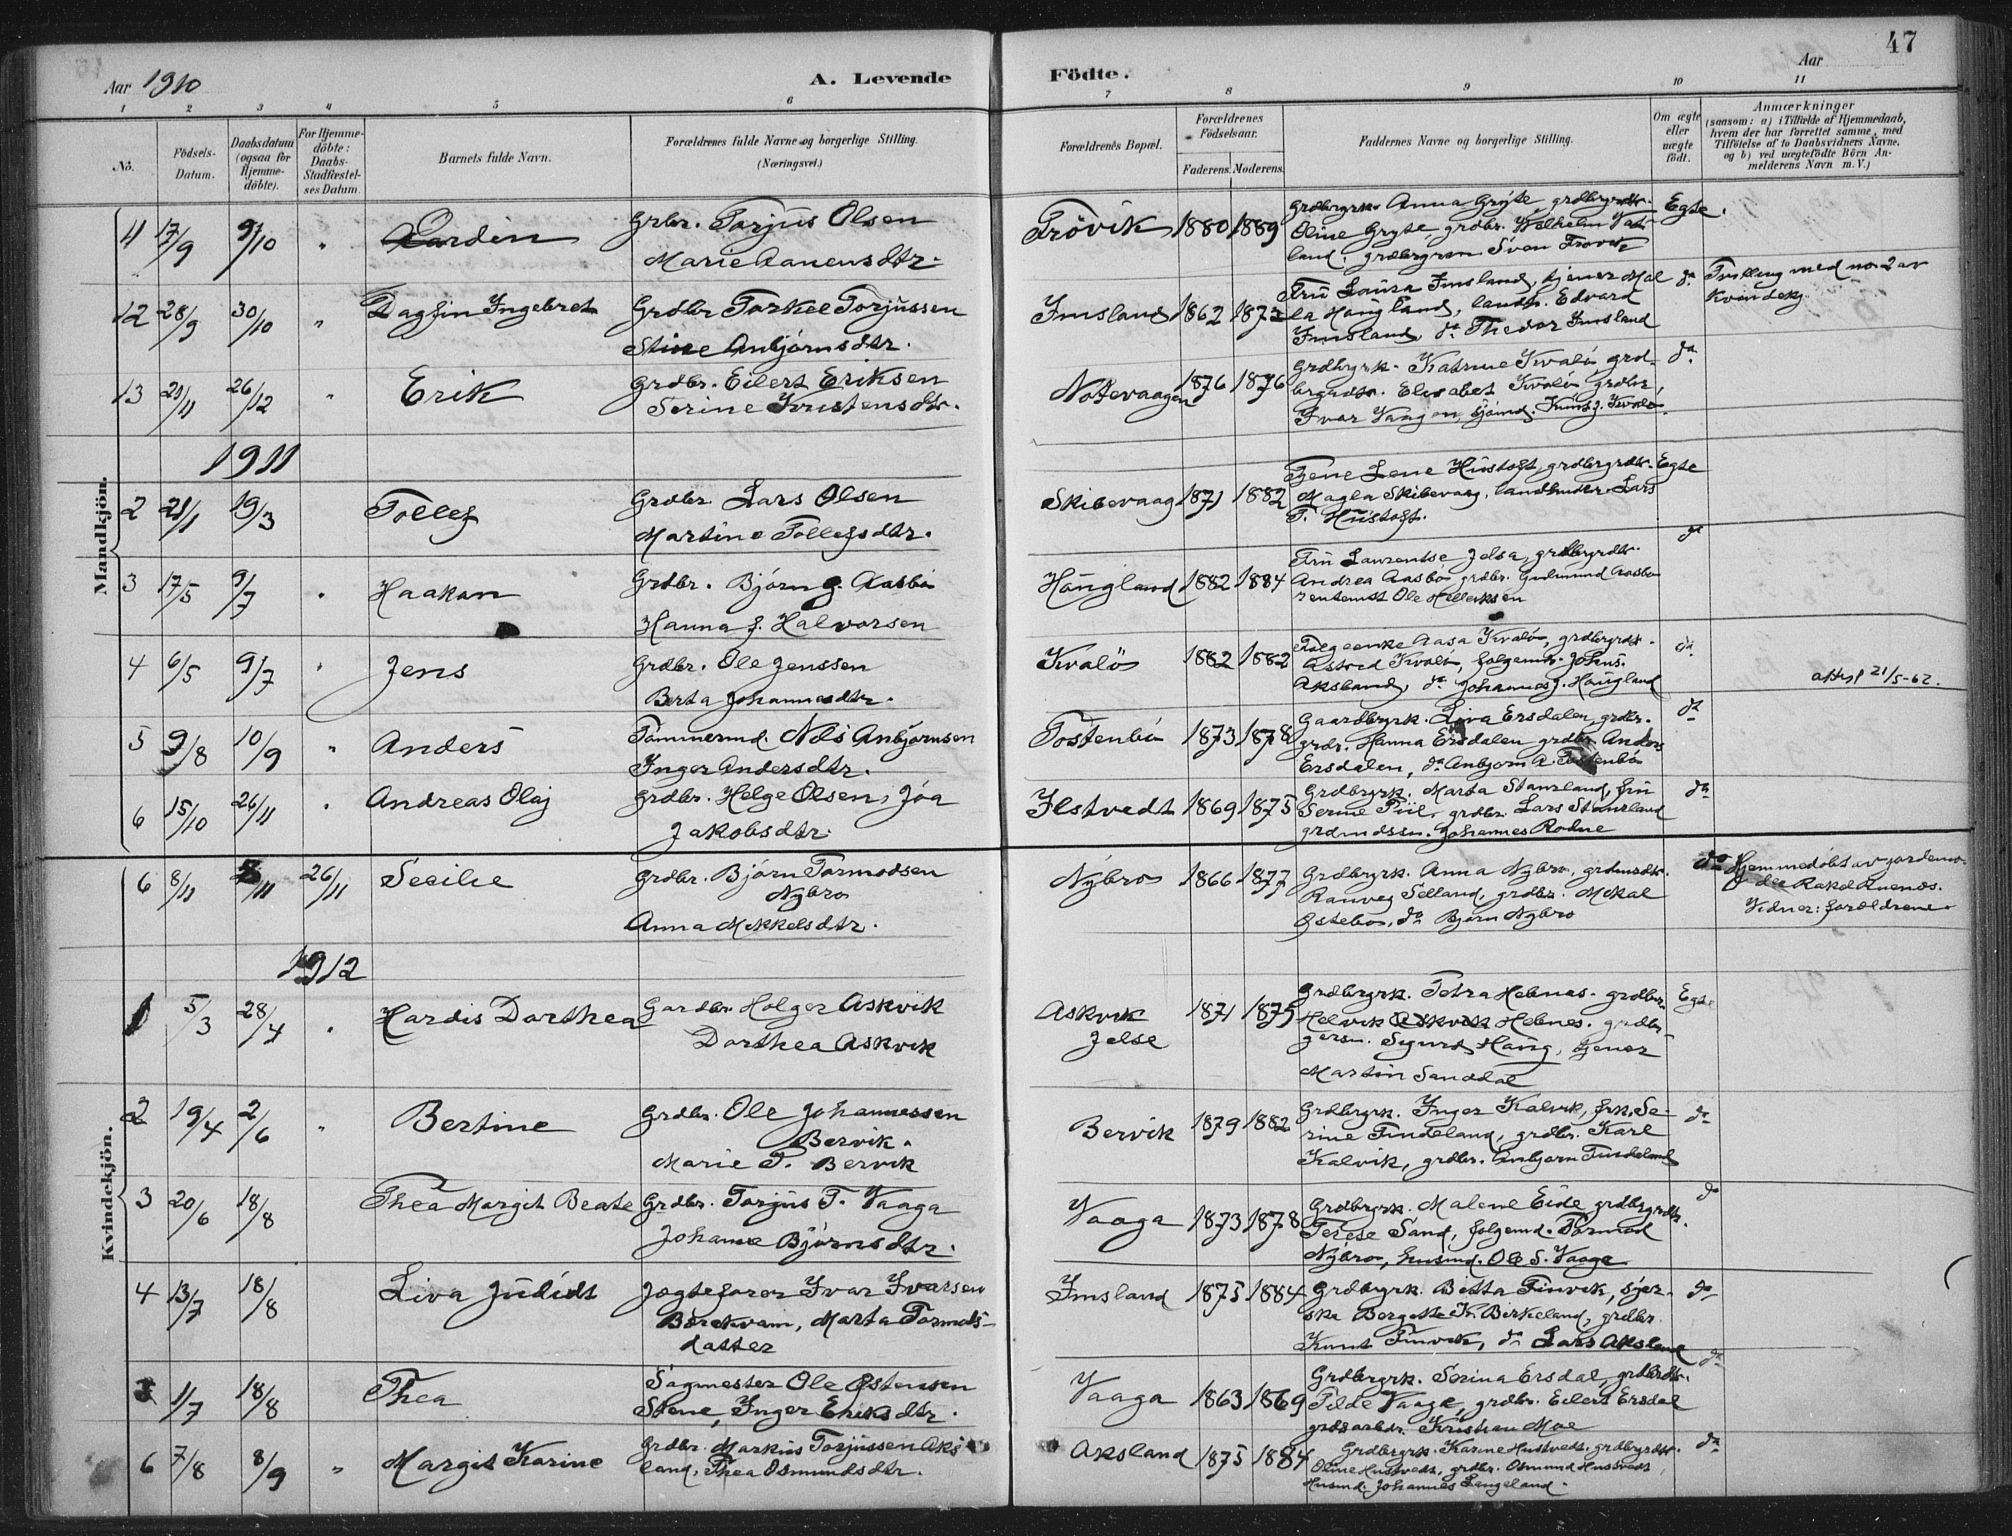 47
Aar 1910
A. Levende Födte.
Aar
1 2 3 4 5 6 7 8 9 10 11
No.
Födsels-Datum.
Daabsdatum (ogsaa for Hjemme-döbte).
For Hjemme-döbte: Daabs-Stadfæstel-ses Datum.
Barnets fulde Navn.
Forældrenes fulde Navne og borgerlige Stilling. (Næringsvei.)
Forældrenes Bopæl.
Forældrenes Födselsaar.
Faderens. Moderens.
Faddernes Navne og borgerlige Stilling.
Om ægte eller uægte födt.
Anmærkninger
(saasom: a) i Tilfælde af Hjemmedaab,
hvem der har forrettet samme, med
Tilföielse af to Daabsvidners Navne,
og b) ved uægtefödte Börn An-
melderens Navn m. V.)
Mandkjön.
17/9 9/10 "
Grbr. Torjus Olsen
Marie
Trövik 1880 1889
Grdbrgrk. Anna Gryte
Oline Gryte, grdbr.
land,
Egte.
12 28/9 30/10 " Dagfin Ingebret
Grdbr Torkel Torjussen
Stine Anbjörnsdtr.
Imsland 1862 1872
Fru Laura Imsland, tjener Mal
la Haugland, landh. Edvard
Imsland, do Thedor Imsland
do
Tvilling med no 2 av
Kvindekj.
13 21/11 26/12 " Erik
Grdbr. Eilert Eriksen
Serine Kristensdtr.
Notevaagen 1876 1876
Grdbrgrk. Katrine Kvalö grd-
brgrdtr. Elisabet Kvalö grdbr,
Ivar Vaagen,
do
1911
2 21/1 19/3 Tollef
Grdbr. Lars Olsen
Martine Tollefsdtr.
Skibevaag 1871 1882
Lene Hustoft, grdbrgrdtr.
Magla Skibevaag, Lars
T. Hustoft.
Egte
3 17/5 9/7 " Haakon
Grdbr. Björn G. Aasbö
Hanna J. Halvorsen
Haugland 1882 1884
Fru Laurentse Jelsa, grdbrgrdtr.
Andrea Aasbö grdbr. Gudmund Aasbö
rentenist Ole Helleksen
do
4 6/5 9/7 " Jens
Grdbr. Ole Jenssen
Berta Johannesdtr.
Kvalö 1882 1882
Folgeenke Aasa Kvalö, grdbrgrdtr.
Astrid Kvalö, folgemd. Johns.
Aksland, do Johannes J. Haugland
do
21/5-62.
5 9/8 10/9 " Anders
Tömmermd. Nils Anbjörnsen
Inger Andersdtr.
Tostenbö 1873 1878
Gaardbrgrk. Liva Ersdalen, grdbr.
grdr. Hanna Ersdalen grdbr. Anders
Ersdalen, do Anbjorn A. Tostenbö
do
6 15/10 26/11 " Andreas Olaj
Grdbr. Helge Olsen, Joa
Jakobsdtr.
Ilstvedt 1869 1875
Grdbrgrk. Marta Stansland, fru
Serine Piil, grdbr. Lars Stansland
Johannes Rodne
do
Kvindekjön.
6 8/11 26/11 Secilie
Grdbr. Björn Tormodsen
Nybro
Anna Mikkelsdtr.
Nybro 1866 1877
Grdbrgrk. Anna Nybro,
Ranveg Selland, grdbr. Mikal
Östebö, do Bjorn Nybro
do
Hjemmedöbt av jordemo-
Vidner: forældrene
1912
1 5/3 28/4 " Hardis Dorthea
Gardbr. Holger Askvik
Dorthea Askvik
Askvik
Jelse
1871 1875
Grdbrgrk. Petra Hebnes. grdbr.
Helvik Hebnes. grdbr-
Sigurd Haug, tjener
Martin Sanddal
Egte
2 19/4 2/6 " Bertine
Grdbr. Ole Johannessen
Bervik.
Marie T. Bervik
Bervik 1879 1882
Grdbrgrk. Inger Kalvik, frk. Se-
rine Tindeland, grdbr. Karl
Kalvik, grdbr. Anbjorn Tindeland
do
3 20/6 18/8 Thea Margit Beate
Grdbr. Torjus T. Vaaga
Johanne Björnsdtr.
Vaaga 1873 1878
Grdbrgrk. Malene Eide grdbrgrdtr.
Terese Sand, folgemd. Tormod
Nybro, husmd. Ole S. Vaage
do
4 13/7 18/8 Liva Judidt
Jægteforer Ivar Ivarsen
Börekvam, Marta Tormods-
datter
Imsland 1875 1884
Grdbrgrk. Bitta Finvik, syer-
ske Bergette K. Birkeland, grdbr.
Knut Finvik, do Lars Aksland
do
5 11/7 18/8 Thea
Sagmester Ole Östensen
Stene, Inger Eriksdtr.
Vaaga 1863 1869
Grdbrgrk. Serina Ersdal, grdbrdtr.
Tilde Vaage, grdbr. Eilert Ersdal
Kristian Moe
do
6 7/8 8/9 " Margit Karine
Grdbr. Markus Torjussen Aks
land, Thea Osmundsdtr.
Aksland 1875 1884
Grdbrgrk. Karine Hustvedt. grdbrgrdtr.
Oline Hustvedt, grdbr. Osmund Hustvedt
Husmd. Johannes Lengeland.
do